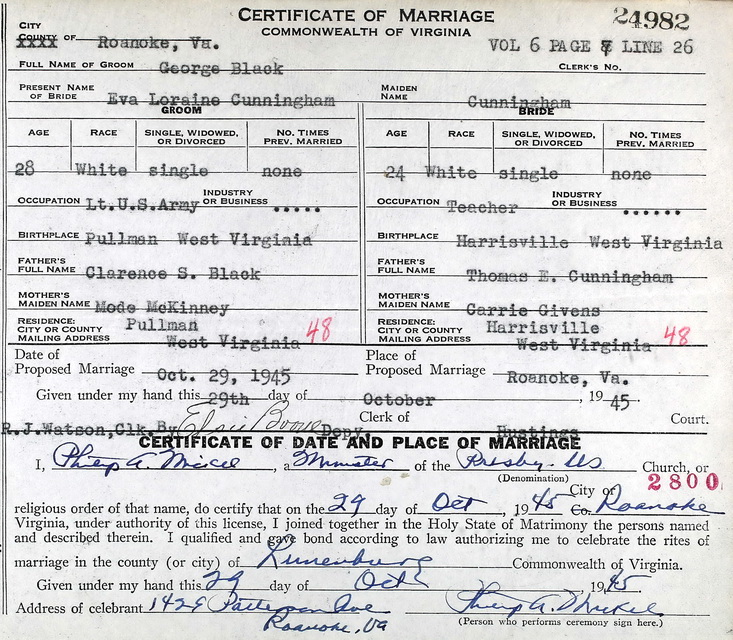 CERTIFICATE OF MARRIAGE
COMMONWEALTH OF VIRGINIA
24982
CITY
COUNTY OF Roanoke, Va.
VOL 6 PAGE 7 LINE 26
FULL NAME OF GROOM George Black CLERK'S NO.
PRESENT NAME OF BRIDE Eva Loraine Cunningham MAIDEN NAME Cunningham
GROOM BRIDE
AGE RACE SINGLE, WIDOWED, OR DIVORCED NO. TIMES PREV. MARRIED AGE RACE SINGLE, WIDOWED, OR DIVORCED NO. TIMES PREV. MARRIED
28 White single none 24 White single none
OCCUPATION Lt.U.S.Army INDUSTRY OR BUSINESS ..... OCCUPATION Teacher INDUSTRY OR BUSINESS ......
BIRTHPLACE Pullman West Virginia BIRTHPLACE Harrisville West Virginia
FATHER'S FULL NAME Clarence S. Black FATHER'S FULL NAME Thomas E. Cunningham
MOTHER'S MAIDEN NAME Mode McKinney MOTHER'S MAIDEN NAME Carrie Givens
RESIDENCE: CITY OR COUNTY MAILING ADDRESS Pullman West Virginia 48 RESIDENCE: CITY OR COUNTY MAILING ADDRESS Harrisville West Virginia 48
Date of Proposed Marriage Oct. 29, 1945 Place of Proposed Marriage Roanoke, Va.
Given under my hand this 29th day of October, 1945
R.J.Watson,Clk.By Elsie Boone Depy Clerk of Hustings Court.
CERTIFICATE OF DATE AND PLACE OF MARRIAGE
I, Philip A. , a Minister of the Presby. US Church, or
(Denomination)
2800
religious order of that name, do certify that on the 29 day of Oct, 1945 City of Co. Roanoke
Virginia, under authority of this license, I joined together in the Holy State of Matrimony the persons named
and described therein. I qualified and gave bond according to law authorizing me to celebrate the rites of
marriage in the county (or city) of Lunenburg Commonwealth of Virginia.
Given under my hand this 29 day of Oct, 1945
Address of celebrant 1429 Patterson Ave Philip A.
Roanoke, Va (Person who performs ceremony sign here.)